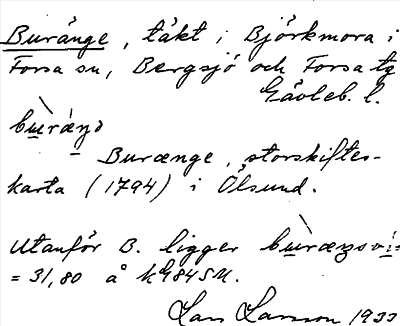 Buränge, täkt i Björkmora i
Forsa sn, Bergsjö och Forsa tg
Gävleb. l.
burænd
Burænge, storskiftes-
karta (1794) i Ölsund.
Utanför B. ligger burænsvi-
= 31,80 å
Lars Larsson 1933